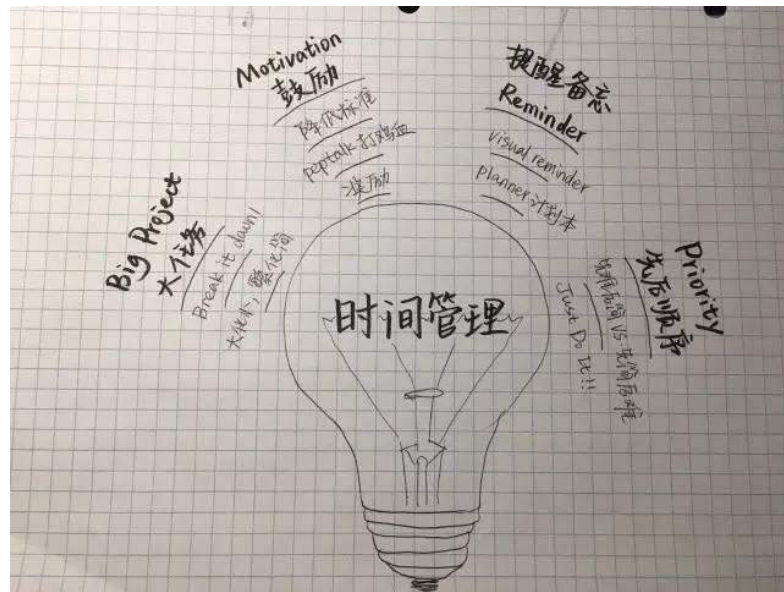 Big Project
大任务
Break it down!
大化小, 繁化简
Motivation
鼓励
降低标准
peptalk 打鸡血
奖励
提醒备忘
Reminder
visual reminder
planner 计划本
Priority
先后顺序
先难后简 VS. 先简后难
Just Do It!!
时间管理